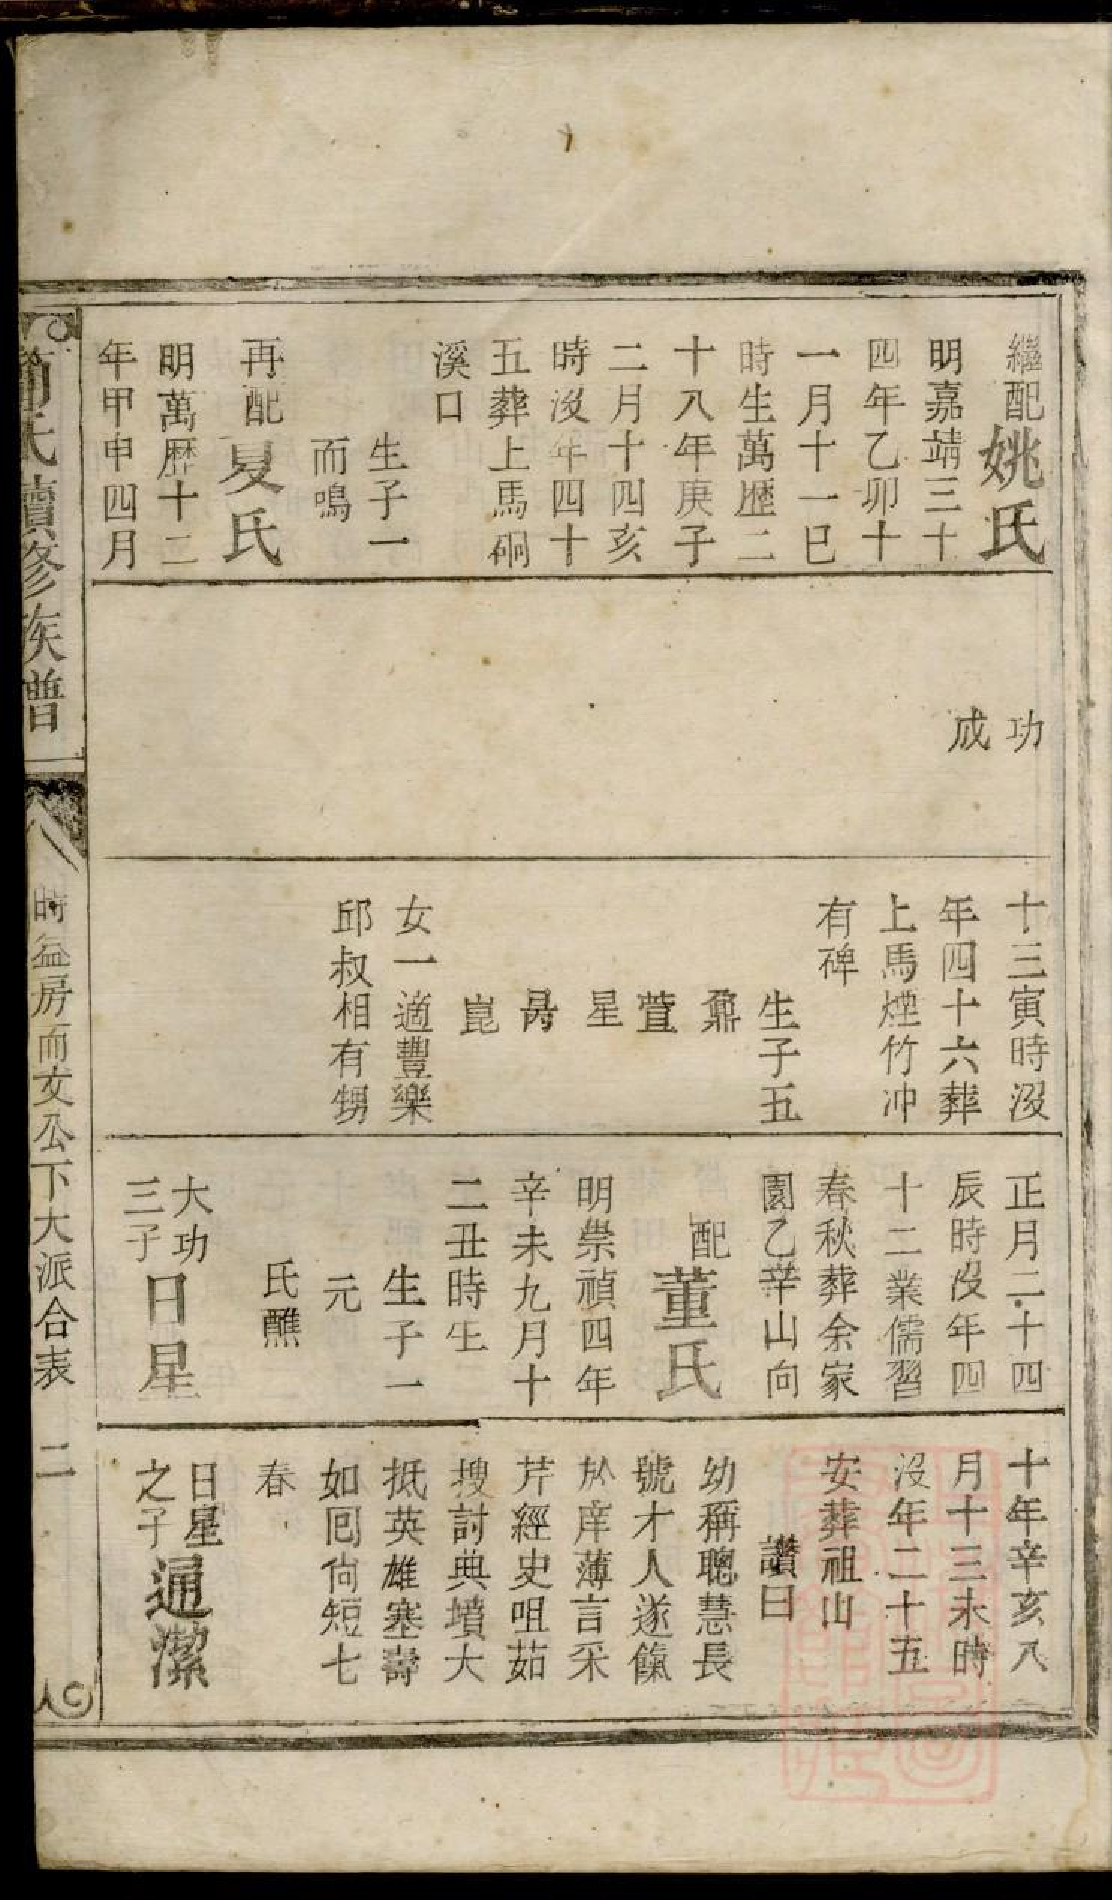 繼配姚氏
明嘉靖三十
四年乙卯十
一月十一巳
時生萬歷二
十八年庚子
二月十四亥
時沒年四十
五葬上馬硐
溪口
生子一
而鳴
再配夏氏
明萬歷十二
年甲申四月
功
成
十三寅時沒
年四十六葬
上馬煙竹冲
有碑
生子五
鼐
萱
星
勗
崑
女一適豐樂
邱叔相有甥
正月二十四
辰時沒年四
十二業儒習
春秋葬余家
園乙辛山向
配董氏
明崇禎四年
辛未九月十
二丑時生
生子一
元
氏醮
大功
三子日星
十年辛亥八
月十三未時
沒年二十五
安葬祖山
讚曰
幼稱聰慧長
號才人遂餼
於庠薄言采
芹經史咀茹
搜討典墳大
抵英雄塞壽
如囘尙短七
春
日星
之子通潔
氏續修族譜
時益房而女公下大派合表 二